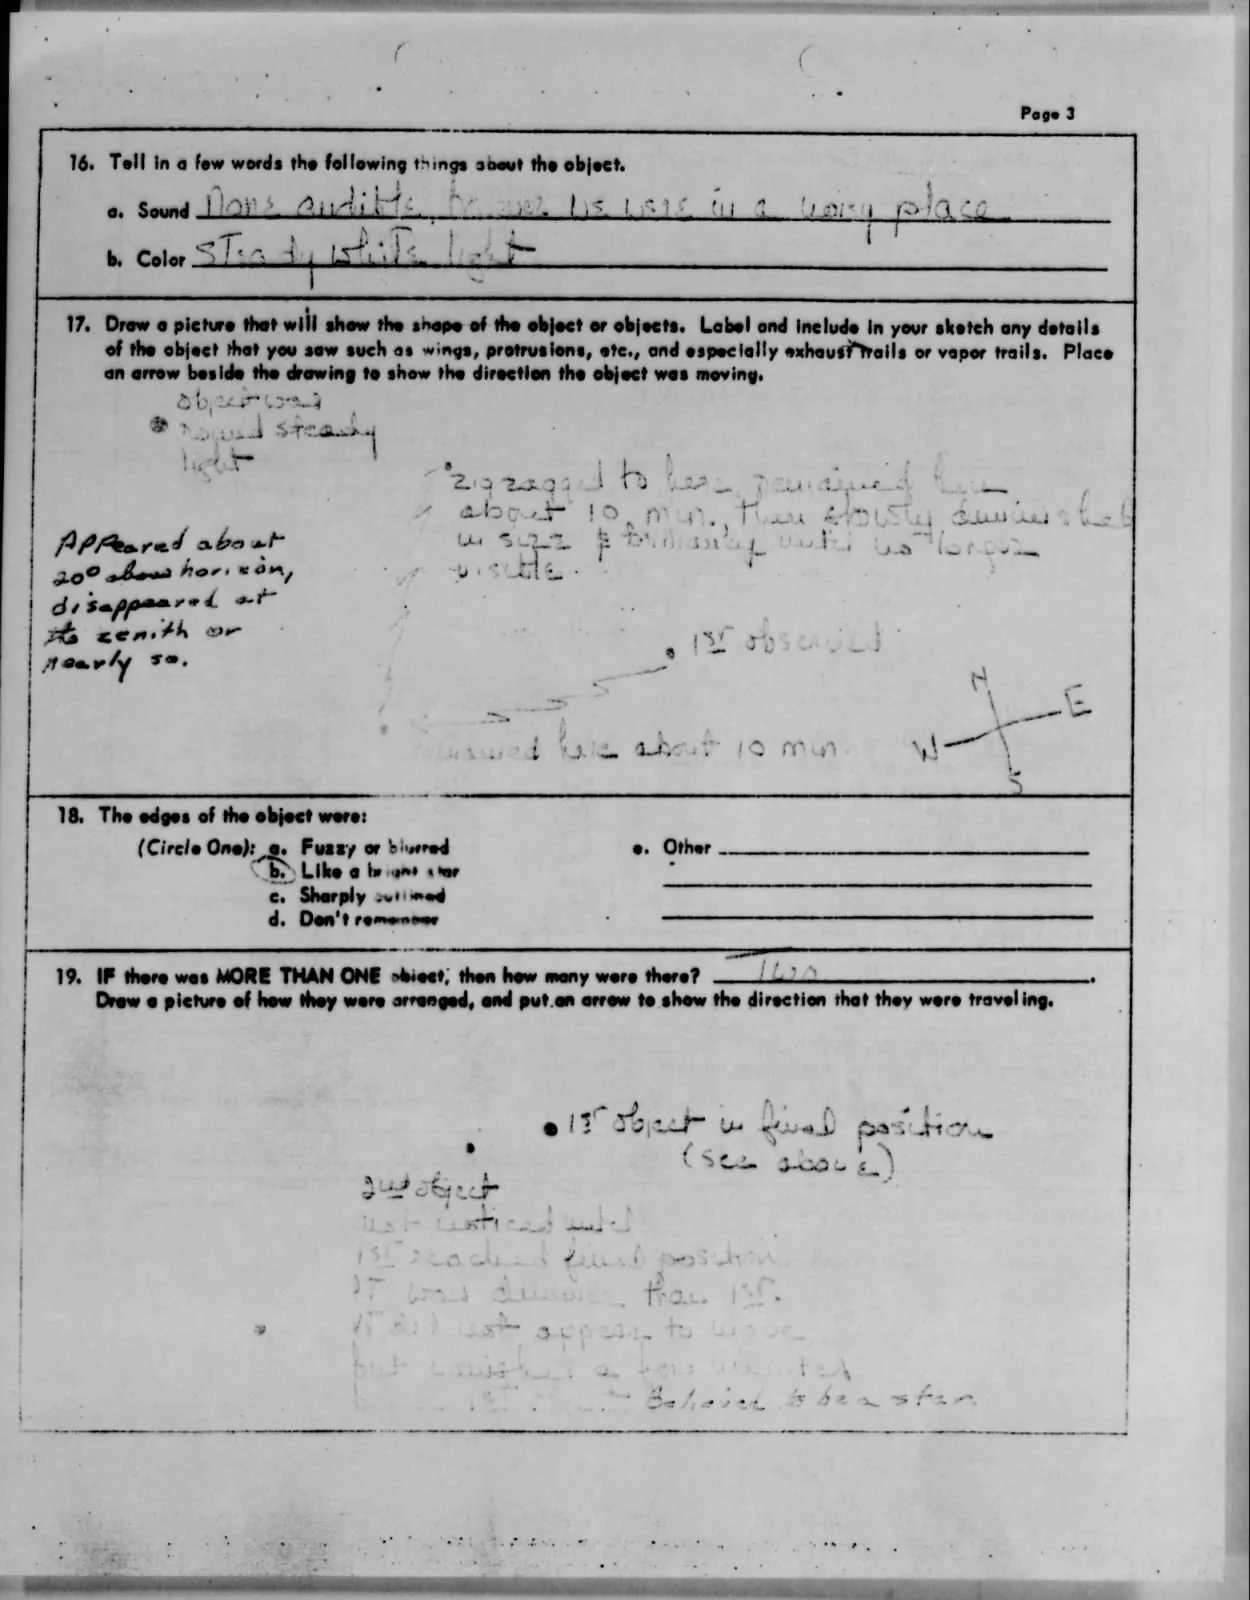 Page 3
16. Tell in a few words the following things about the object.
a. Sound None audible, however we were in a noisy place
b. Color Steady white light
17. Draw a picture that will show the shape of the object or objects. Label and include in your sketch any details
of the object that you saw such as wings, protrusions, etc., and especially exhaust trails or vapor trails. Place
an arrow beside the drawing to show the direction the object was moving.
object was
round steady
light
zigzagged to here, remained here
about 10 min., then slowly diminished
in size & brilliancy until no longer
visible.
Appeared about
20° above horizon,
disappeared at
its zenith or
nearly so.
1st observed
remained here about 10 min.
N
E
W
S
18. The edges of the object were:
(Circle One): a. Fuzzy or blurred
b. Like a bright star
c. Sharply outlined
d. Don't remember
e. Other
19. IF there was MORE THAN ONE object, then how many were there? Two .
Draw a picture of how they were arranged, and put an arrow to show the direction that they were traveling.
1st object in final position
(see above)
2nd object
not noticed until
1st reached final position
It was dimmer than 1st.
It did not appear to move
but vanished a few minutes
1st Believed to be a star